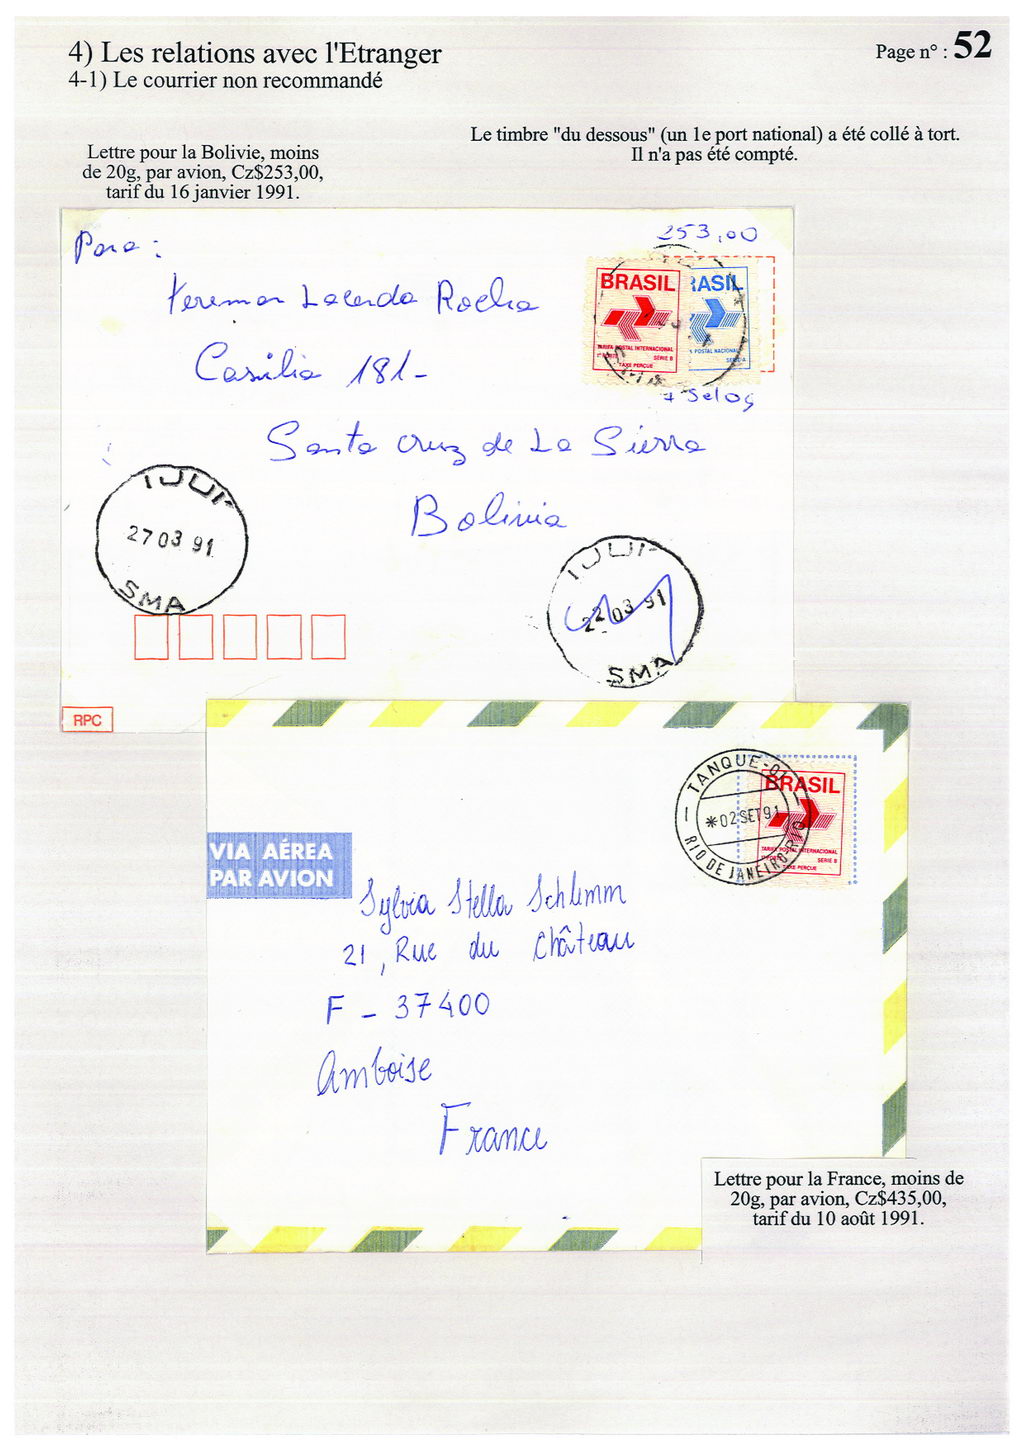 4) Les relations avec l'Etranger
4-1) Le courrier non recommandé
Page n° : 52
Le timbre "du dessous" (un 1e port national) a été collé à tort.
Il n'a pas été compté.
Lettre pour la Bolivie, moins
de 20g, par avion, Cz$253,00,
tarif du 16 janvier 1991.
Para :
253,00
Lacerda Rocha
Casilia 181-
Santa Cruz de La Sierra
Bolivia
BRASIL
TARIFA POSTAL INTERNACIONAL
SÉRIE B
TAXE PERÇUE
RASIL
POSTAL NACIONAL
SÉRIE A
Selos
IJUI
27 03 91
SMA
IJUI
22 03 91
SMA
RPC
TANQUE-01
*02 SET 91
RIO DE JANEIRO
BRASIL
TARIFA POSTAL INTERNACIONAL
SÉRIE B
TAXE PERÇUE
VIA AÉREA
PAR AVION
Sylvia Stella Schlimm
21, Rue du Château
F - 37400
Amboise
France
Lettre pour la France, moins de
20g, par avion, Cz$435,00,
tarif du 10 août 1991.